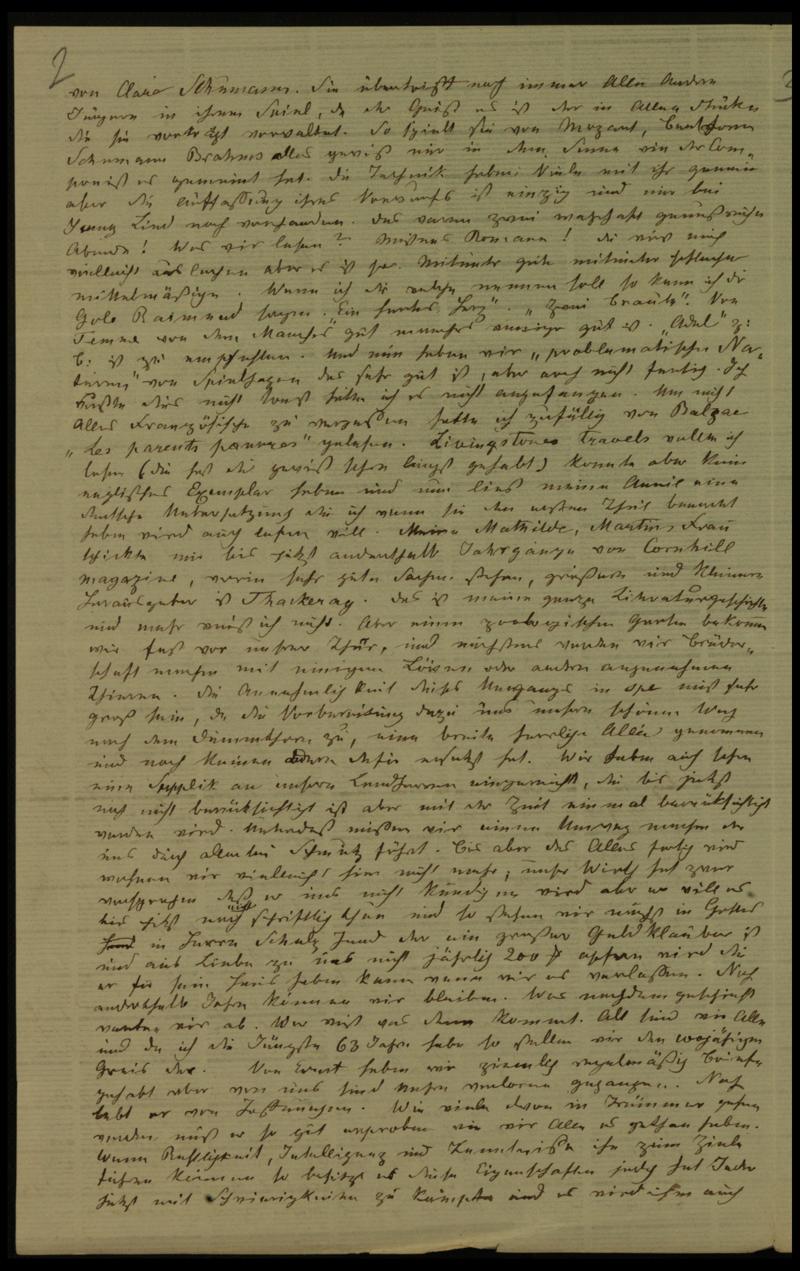 2
von Clara Schumann. Sie übertrifft noch immer Alle Andern
Jüngern in ihrem Spiel, da der Geist es ist der in Allen Stücken
die sie vorträgt vorwaltet. So spielt sie von Mozart, Beethoven
Schumann Brahms alles gewiß nur in dem Sinne wie der Com„
ponist es gemeint hat. Die Technik haben Viele mit ihr gemein
aber die Auffassung ihres Vorwurfs ist einzig und nur bei
Jenny Lind noch vorhanden. Das waren zwei wahrhaft genußreiche
Abende! Was wir lesen? Meistens Romane! Du wirst mich
vielleicht auslachen aber es ist so. Mitunter gute mitunter schlechte
mittelmäßige. Wenn ich Dir welche nennen soll so kann ich Dir
Golo Raimund sagen. „Ein hartes Herz". „Zwei Bräute". Von
Temme von dem Manches gut manches weniger gut ist. „Adel" z:
b: ist zu empfehlen. Und nun haben wir „problematische Na„
turen" von Spielhagen das sehr gut ist, aber auch nicht fertig. Ich
wußte dies nicht sonst hätte ich es nicht angefangen. Um nicht
Alles Französische zu vergessen hatte ich zufällig von Balzac
„les parents pauvres" gelesen. Livingstones travels wollte ich
lesen (Du hast die gewiß schon längst gehabt) konnte aber kein
englisches Exemplar haben und nun liest meine Annie eine
deutsche Uebersetzung die ich wenn sie den ersten Theil beendet
haben wird auch lesen will. Meine Mathilde, Martins Frau
schickte mir bis jetzt anderthalb Jahrgänge von Cornhill
magazine, worin sehr gute Sachen stehen, größere und kleinere
Herausgeber ist Thackeray. Das ist meine ganze Literaturgeschichte
und mehr weiß ich nicht. Aber einen zoologischen Garten bekommen
wir fast vor unsrer Thür, und nächstens werden wir Brüder„
schaft machen mit einigen Löwen oder andern angenehmen
Thieren. Die Annehmlichkeit dieses Umgangs in spe muß sehr
groß sein, da die Vorbereitung dazu uns unsern schönen Weg
nach dem Dammthore zu, eine breite herrliche Allée genommen
und noch keinen andern dafür ersetzt hat. Wir haben auch schon
eine Supplik an unsere Landherren eingereicht, die bis jetzt
noch nicht berücksichtigt ist aber mit der Zeit einmal berücksichtigt
werden wird. Unterdeß müssen wir einen Umweg machen der
uns durch allerlei Schmutz führt. Bis aber das Alles fertig wird
wohnen wir vielleicht hier nicht mehr, unser Wirth hat zwar
versprochen daß er uns nicht kündigen wird aber er will es
bis jetzt noch nicht schriftlich thun und so stehen wir nächst in Gottes
in Herrn Schulz Hand der ein großer Geldklauber ist
und aus Liebe zu uns nicht jährlich 200 opfern wird die
er für sein Haus haben kann wenn wir es verlassen. Noch
anderthalb Jahr können wir bleiben. Was nachdem geschieht
warten wir ab. Wer weiß was dann kommt. Alt sind wir Alle
und da ich die Jüngste 63 Jahre habe so stellen wir den jährigen
Greis dar. Von Ernst haben wir ziemlich regelmäßig Briefe
gehabt aber von uns sind mehre verloren gegangen. Noch
lebt er von Hoffnungen. Wie viele davon in Trümmer gehen
werden muß er so gut erproben wie wir Alle es gethan haben.
Wenn Redlichkeit, Intelligenz und Kenntnisse ihn zum Ziele
führen können so besitzt er diese Eigenschaften jedoch hat Jeder
jetzt mit Schwierigkeiten zu kämpfen und es wird ihm auch